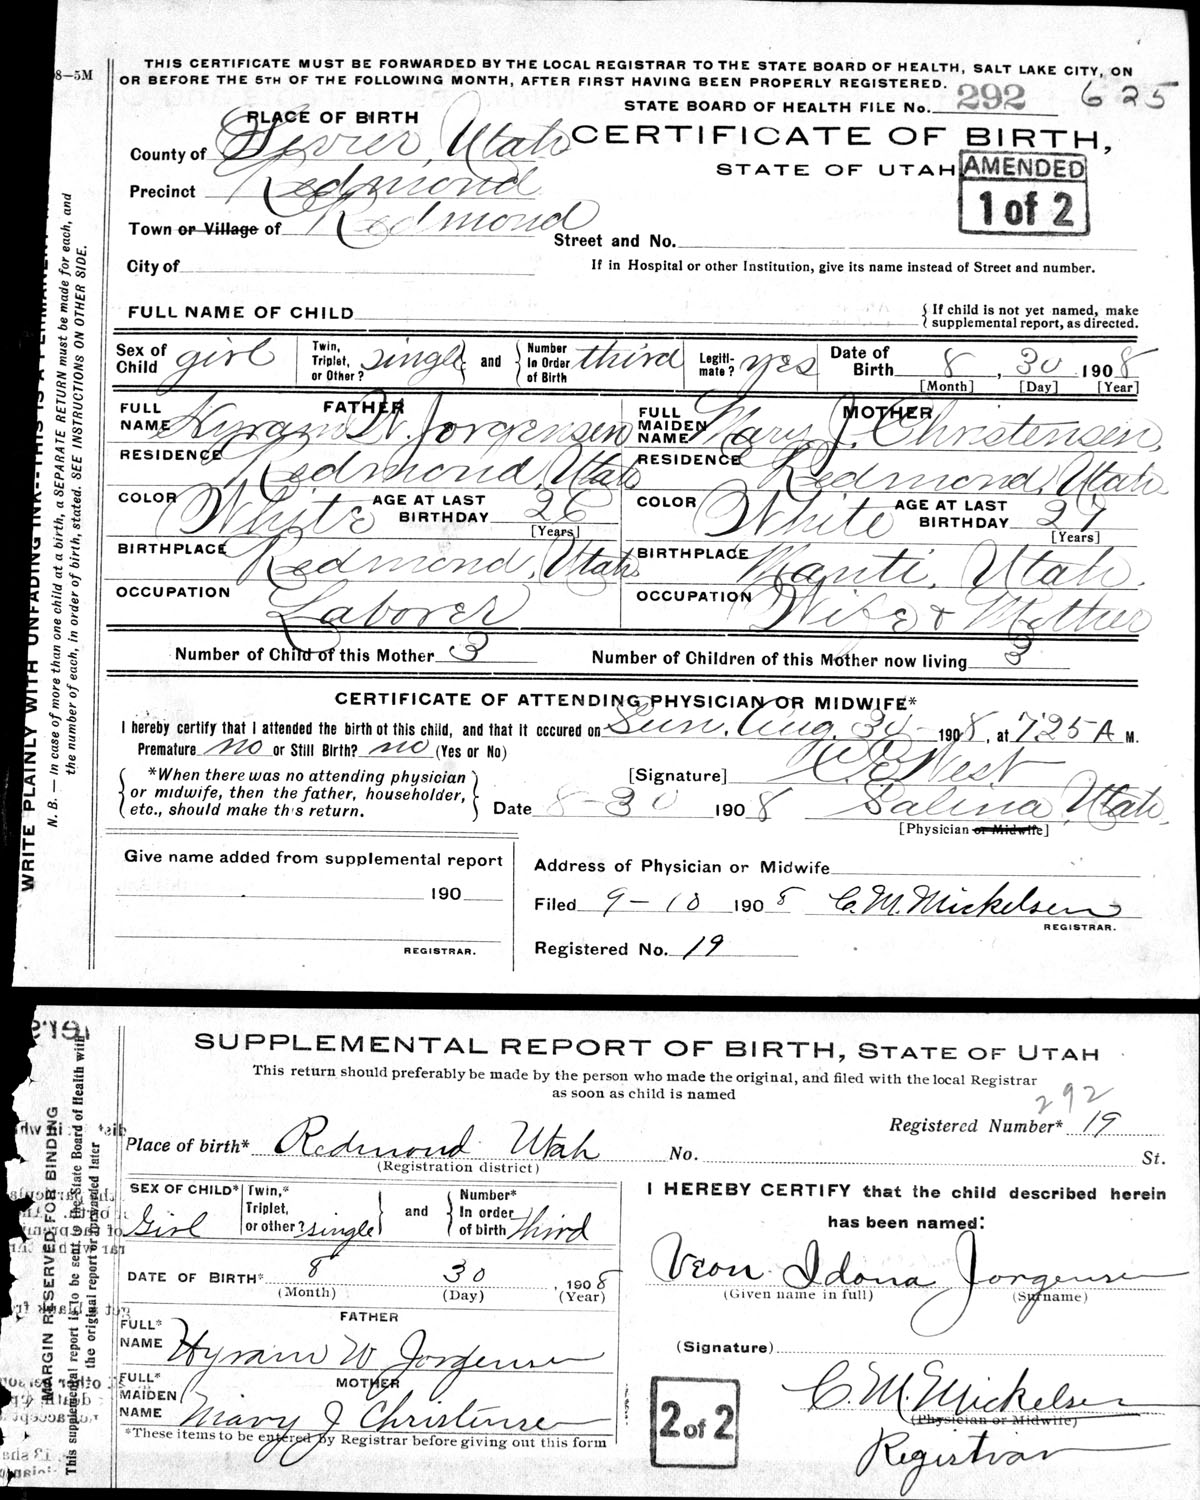 8—5M
THIS CERTIFICATE MUST BE FORWARDED BY THE LOCAL REGISTRAR TO THE STATE BOARD OF HEALTH, SALT LAKE CITY, ON
OR BEFORE THE 5TH OF THE FOLLOWING MONTH, AFTER FIRST HAVING BEEN PROPERLY REGISTERED.
STATE BOARD OF HEALTH FILE No. 292 625
PLACE OF BIRTH
CERTIFICATE OF BIRTH,
County of Sevier, Utah
STATE OF UTAH
AMENDED
1 of 2
Precinct Redmond
Town or Village of Redmond
Street and No.
City of
If in Hospital or other Institution, give its name instead of Street and number.
FULL NAME OF CHILD
{ If child is not yet named, make
supplemental report, as directed.
Sex of Child girl
Twin, Triplet, or Other? single and
Number In Order of Birth third
Legiti- mate? yes
Date of Birth 8, 30 1908
[Month] [Day] [Year]
FATHER
FULL NAME Hyram W. Jorgensen
RESIDENCE Redmond, Utah
COLOR White AGE AT LAST BIRTHDAY 26
[Years]
BIRTHPLACE Redmond, Utah.
OCCUPATION Laborer
MOTHER
FULL MAIDEN NAME Mary J. Christensen,
RESIDENCE Redmond, Utah
COLOR White AGE AT LAST BIRTHDAY 27
[Years]
BIRTHPLACE Manti, Utah.
OCCUPATION Wife & Mother
Number of Child of this Mother 3 Number of Children of this Mother now living 3
CERTIFICATE OF ATTENDING PHYSICIAN OR MIDWIFE*
I hereby certify that I attended the birth of this child, and that it occured on Sun. Aug. 30 - 1908, at 7.25 A M.
Premature no or Still Birth? no (Yes or No)
*When there was no attending physician
or midwife, then the father, householder,
etc., should make this return.
[Signature] West
Date 8-30 1908 Salina, Utah.
[Physician or Midwife]
Give name added from supplemental report
190
REGISTRAR.
Address of Physician or Midwife
Filed 9-10 1908 C. M. Mickelsen
REGISTRAR.
Registered No. 19
WRITE PLAINLY WITH UNFADING INK--THIS IS A PERMANENT
N. B. — In case of more than one child at a birth, a SEPARATE RETURN must be made for each, and
the number of each, in order of birth, stated. SEE INSTRUCTIONS ON OTHER SIDE.
SUPPLEMENTAL REPORT OF BIRTH, STATE OF UTAH
This return should preferably be made by the person who made the original, and filed with the local Registrar
as soon as child is named
292
Registered Number* 19
Place of birth* Redmond Utah No. St.
(Registration district)
SEX OF CHILD* Girl
Twin,* Triplet, or other? single and
Number* In order of birth third
DATE OF BIRTH* 8 30, 1908
(Month) (Day) (Year)
FATHER
FULL* NAME Hyram W Jorgensen
MOTHER
FULL* MAIDEN NAME Mary J Christensen
*These items to be entered by Registrar before giving out this form
I HEREBY CERTIFY that the child described herein
has been named:
Veon Idona Jorgensen
(Given name in full) (Surname)
(Signature)
C. M. Mickelsen
(Physician or Midwife)
Registrar
2 of 2
MARGIN RESERVED FOR BINDING
This supplemental report is to be sent to the State Board of Health with
the original report or forwarded later